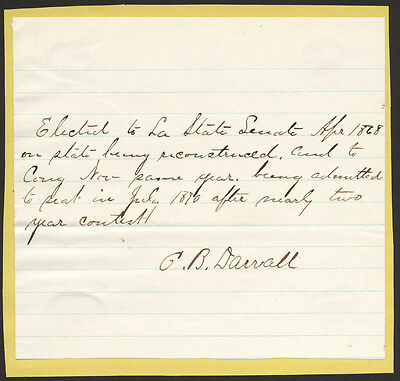 Elected to La State Senate Apr 1868
on state being reconstruced, and to
Cong Nov same year, being admitted
to seat in July, 1870 after nearly two
year contest
C. B. Darrall